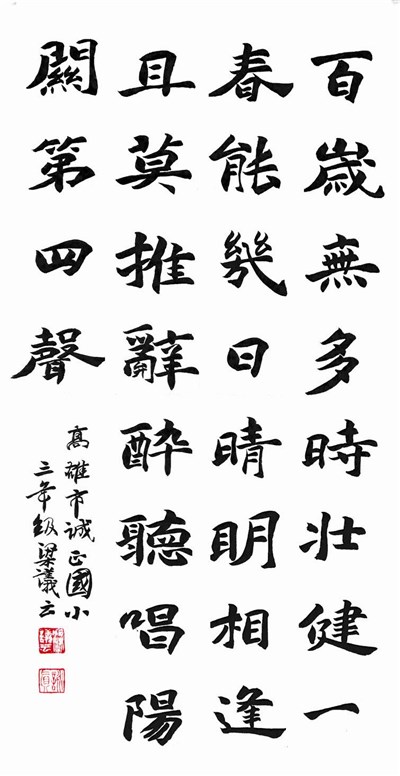 百歲無多時壯健一
春能幾日晴明相逢
且莫推辭醉聽唱陽
關第四聲
高雄市誠正國小
三年級梁議云